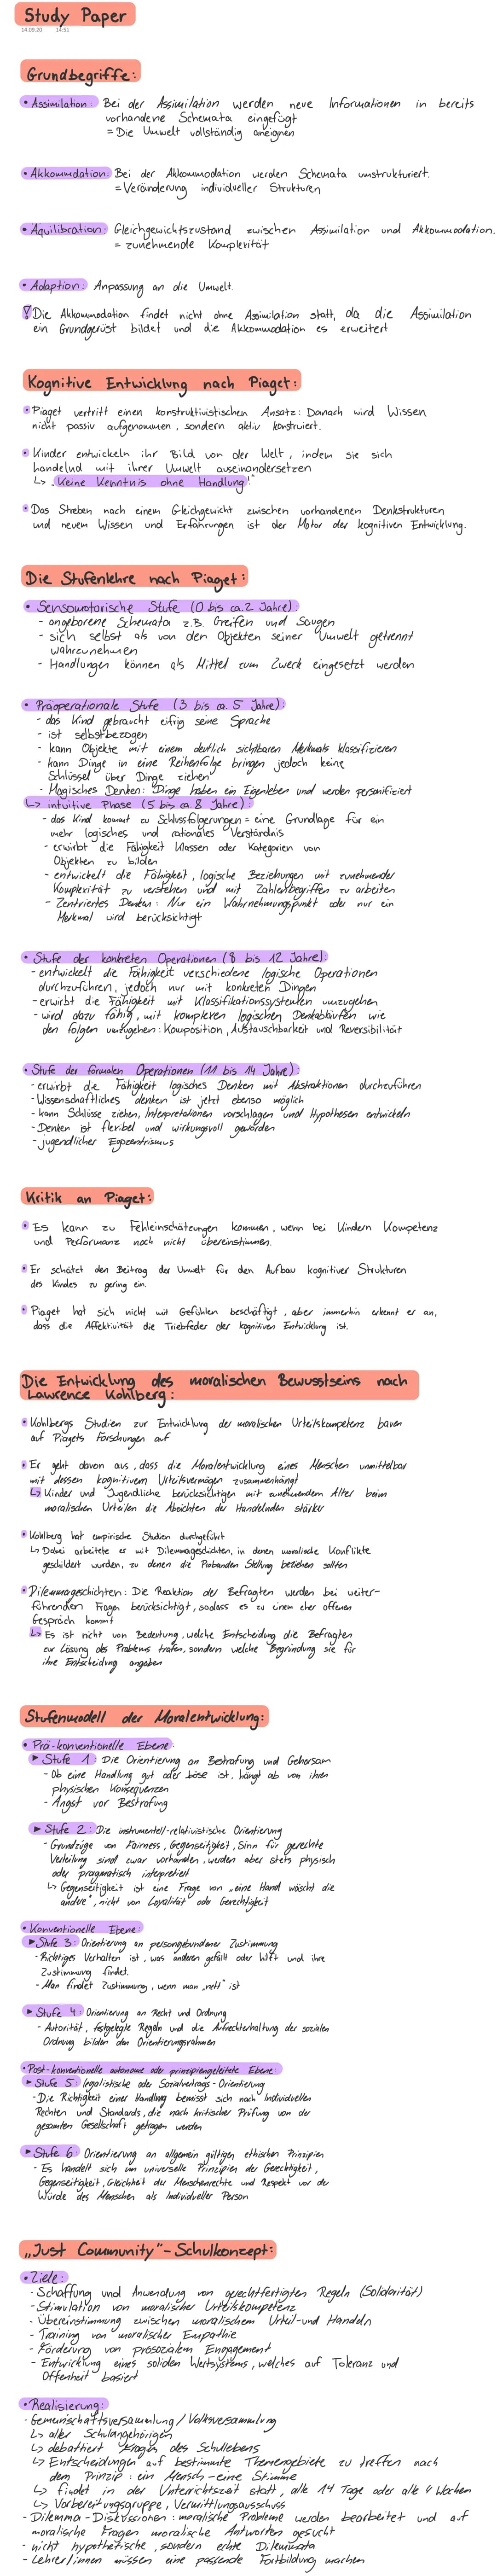 Study Paper
14.09.20 14:51
Grundbegriffe:
• Assimilation: Bei der Assimilation werden neue Informationen in bereits
vorhandene Schemata eingefügt
= Die Umwelt vollständig aneignen
• Akkommdation: Bei der Akkommodation werden Schemata umstrukturiert.
= Veränderung individueller Strukturen
• Äquilibration: Gleichgewichtszustand zwischen Assimilation und Akkommodation.
= zunehmende Komplexität
• Adaption: Anpassung an die Umwelt.
! Die Akkommodation findet nicht ohne Assimilation statt, da die Assimilation
ein Grundgerüst bildet und die Akkommodation es erweitert
Kognitive Entwicklung nach Piaget:
• Piaget vertritt einen konstruktivistischen Ansatz: Danach wird Wissen
nicht passiv aufgenommen, sondern aktiv konstruiert.
• Kinder entwickeln ihr Bild von der Welt, indem sie sich
handelnd mit ihrer Umwelt auseinandersetzen
↳ „Keine Kenntnis ohne Handlung!"
• Das Streben nach einem Gleichgewicht zwischen vorhandenen Denkstrukturen
und neuem Wissen und Erfahrungen ist der Motor der kognitiven Entwicklung.
Die Stufenlehre nach Piaget:
• Sensomotorische Stufe (0 bis ca. 2 Jahre):
- angeborene Schemata z.B. Greifen und Saugen
- sich selbst als von den Objekten seiner Umwelt getrennt
wahrzunehmen
- Handlungen können als Mittel zum Zweck eingesetzt werden
• Präoperationale Stufe (3 bis ca. 5 Jahre):
- das Kind gebraucht eifrig seine Sprache
- ist selbstbezogen
- kann Objekte mit einem deutlich sichtbaren Merkmals klassifizieren
- kann Dinge in eine Reihenfolge bringen jedoch keine
Schlüssel über Dinge ziehen
- Magisches Denken: Dinge haben ein Eigenleben und werden personifiziert
↳ intuitive Phase (5 bis ca. 8 Jahre):
- das Kind kommt zu Schlussfolgerungen = eine Grundlage für ein
mehr logisches und rationales Verständnis
- erwirbt die Fähigkeit Klassen oder Kategorien von
Objekten zu bilden
- entwickelt die Fähigkeit, logische Beziehungen mit zunehmender
Komplexität zu verstehen und mit Zahlenbegriffen zu arbeiten
- Zentriertes Denken: Nur ein Wahrnehmungspunkt oder nur ein
Merkmal wird berücksichtigt
• Stufe der konkreten Operationen (8 bis 12 Jahre):
- entwickelt die Fähigkeit verschiedene logische Operationen
durchzuführen, jedoch nur mit konkreten Dingen
- erwirbt die Fähigkeit mit Klassifikationssystemen umzugehen
- wird dazu fähig, mit komplexen logischen Denkabläufen wie
den folgen umzugehen: Komposition, Austauschbarkeit und Reversibilität
• Stufe der formalen Operationen (11 bis 14 Jahre):
- erwirbt die Fähigkeit logisches Denken mit Abstraktionen durchzuführen
- Wissenschaftliches denken ist jetzt ebenso möglich
- kann Schlüsse ziehen, Interpretationen vorschlagen und Hypothesen entwickeln
- Denken ist flexibel und wirkungsvoll geworden
- jugendlicher Egozentrismus
Kritik an Piaget:
• Es kann zu Fehleinschätzungen kommen, wenn bei Kindern Kompetenz
und Performanz noch nicht übereinstimmen.
• Er schätzt den Beitrag der Umwelt für den Aufbau kognitiver Strukturen
des Kindes zu gering ein.
• Piaget hat sich nicht mit Gefühlen beschäftigt, aber immerhin erkennt er an,
dass die Affektivität die Triebfeder der kognitiven Entwicklung ist.
Die Entwicklung des moralischen Bewusstseins nach
Lawrence Kohlberg:
• Kohlbergs Studien zur Entwicklung der moralischen Urteilskompetenz bauen
auf Piagets Forschungen auf
• Er geht davon aus, dass die Moralentwicklung eines Menschen unmittelbar
mit dessen kognitivem Urteilsvermögen zusammenhängt
↳ Kinder und Jugendliche berücksichtigen mit zunehmendem Alter beim
moralischen Urteilen die Absichten der Handelnden stärker
• Kohlberg hat empirische Studien durchgeführt
↳ Dabei arbeitete er mit Dilemmageschichten, in denen moralische Konflikte
geschildert wurden, zu denen die Probanden Stellung beziehen sollten
• Dilemmageschichten: Die Reaktion der Befragten werden bei weiter-
führenden Fragen berücksichtigt, sodass es zu einem eher offenen
Gespräch kommt
↳ Es ist nicht von Bedeutung, welche Entscheidung die Befragten
zur Lösung des Problems trafen, sondern welche Begründung sie für
ihre Entscheidung angaben
Stufenmodell der Moralentwicklung:
• Prä-konventionelle Ebene:
► Stufe 1: Die Orientierung an Bestrafung und Gehorsam
- Ob eine Handlung gut oder böse ist, hängt ab von ihren
physischen Konsequenzen
- Angst vor Bestrafung
► Stufe 2: Die instrumentell-relativistische Orientierung
- Grundzüge von Fairness, Gegenseitigkeit, Sinn für gerechte
Verteilung sind zwar vorhanden, werden aber stets physisch
oder pragmatisch interpretiert
↳ Gegenseitigkeit ist eine Frage von „eine Hand wäscht die
andere", nicht von Loyalität oder Gerechtigkeit
• Konventionelle Ebene:
► Stufe 3: Orientierung an personengebundener Zustimmung
- Richtiges Verhalten ist, was anderen gefällt oder hilft und ihre
Zustimmung findet.
- Man findet Zustimmung, wenn man „nett" ist
► Stufe 4: Orientierung an Recht und Ordnung
- Autorität, festgelegte Regeln und die Aufrechterhaltung der sozialen
Ordnung bilden den Orientierungsrahmen
• Post-konventionelle autonome oder prinzipiengeleitete Ebene:
► Stufe 5: legalistische oder Sozialvertrags-Orientierung
- Die Richtigkeit einer Handlung bemisst sich nach Individuellen
Rechten und Standards, die nach kritischer Prüfung von der
gesamten Gesellschaft getragen werden
► Stufe 6: Orientierung an allgemein gültigen ethischen Prinzipien
- Es handelt sich um universelle Prinzipien der Gerechtigkeit,
Gegenseitigkeit, Gleichheit der Menschenrechte und Respekt vor der
Würde des Menschen als Individueller Person
„Just Community"-Schulkonzept:
• Ziele:
- Schaffung und Anwendung von gerechtfertigten Regeln (Solidarität)
- Stimulation von moralischer Urteilskompetenz
- Übereinstimmung zwischen moralischem Urteil-und Handeln
- Training von moralischer Empathie
- Förderung von prosozialem Engagement
- Entwicklung eines soliden Wertsystems, welches auf Toleranz und
Offenheit basiert
• Realisierung:
- Gemeinschaftsversammlung / Vollversammlung
↳ aller Schulangehörigen
↳ debattiert Fragen des Schullebens
↳ Entscheidungen auf bestimmte Themengebiete zu treffen nach
dem Prinzip: ein Mensch - eine Stimme
↳ findet in der Unterrichtszeit statt, alle 14 Tage oder alle 4 Wochen
↳ Vorbereitungsgruppe, Vermittlungsausschuss
- Dilemma-Diskussionen: moralische Probleme werden bearbeitet und auf
moralische Fragen moralische Antworten gesucht
- nicht hypothetische, sondern echte Dilemmata
- Lehrer/innen müssen eine passende Fortbildung machen